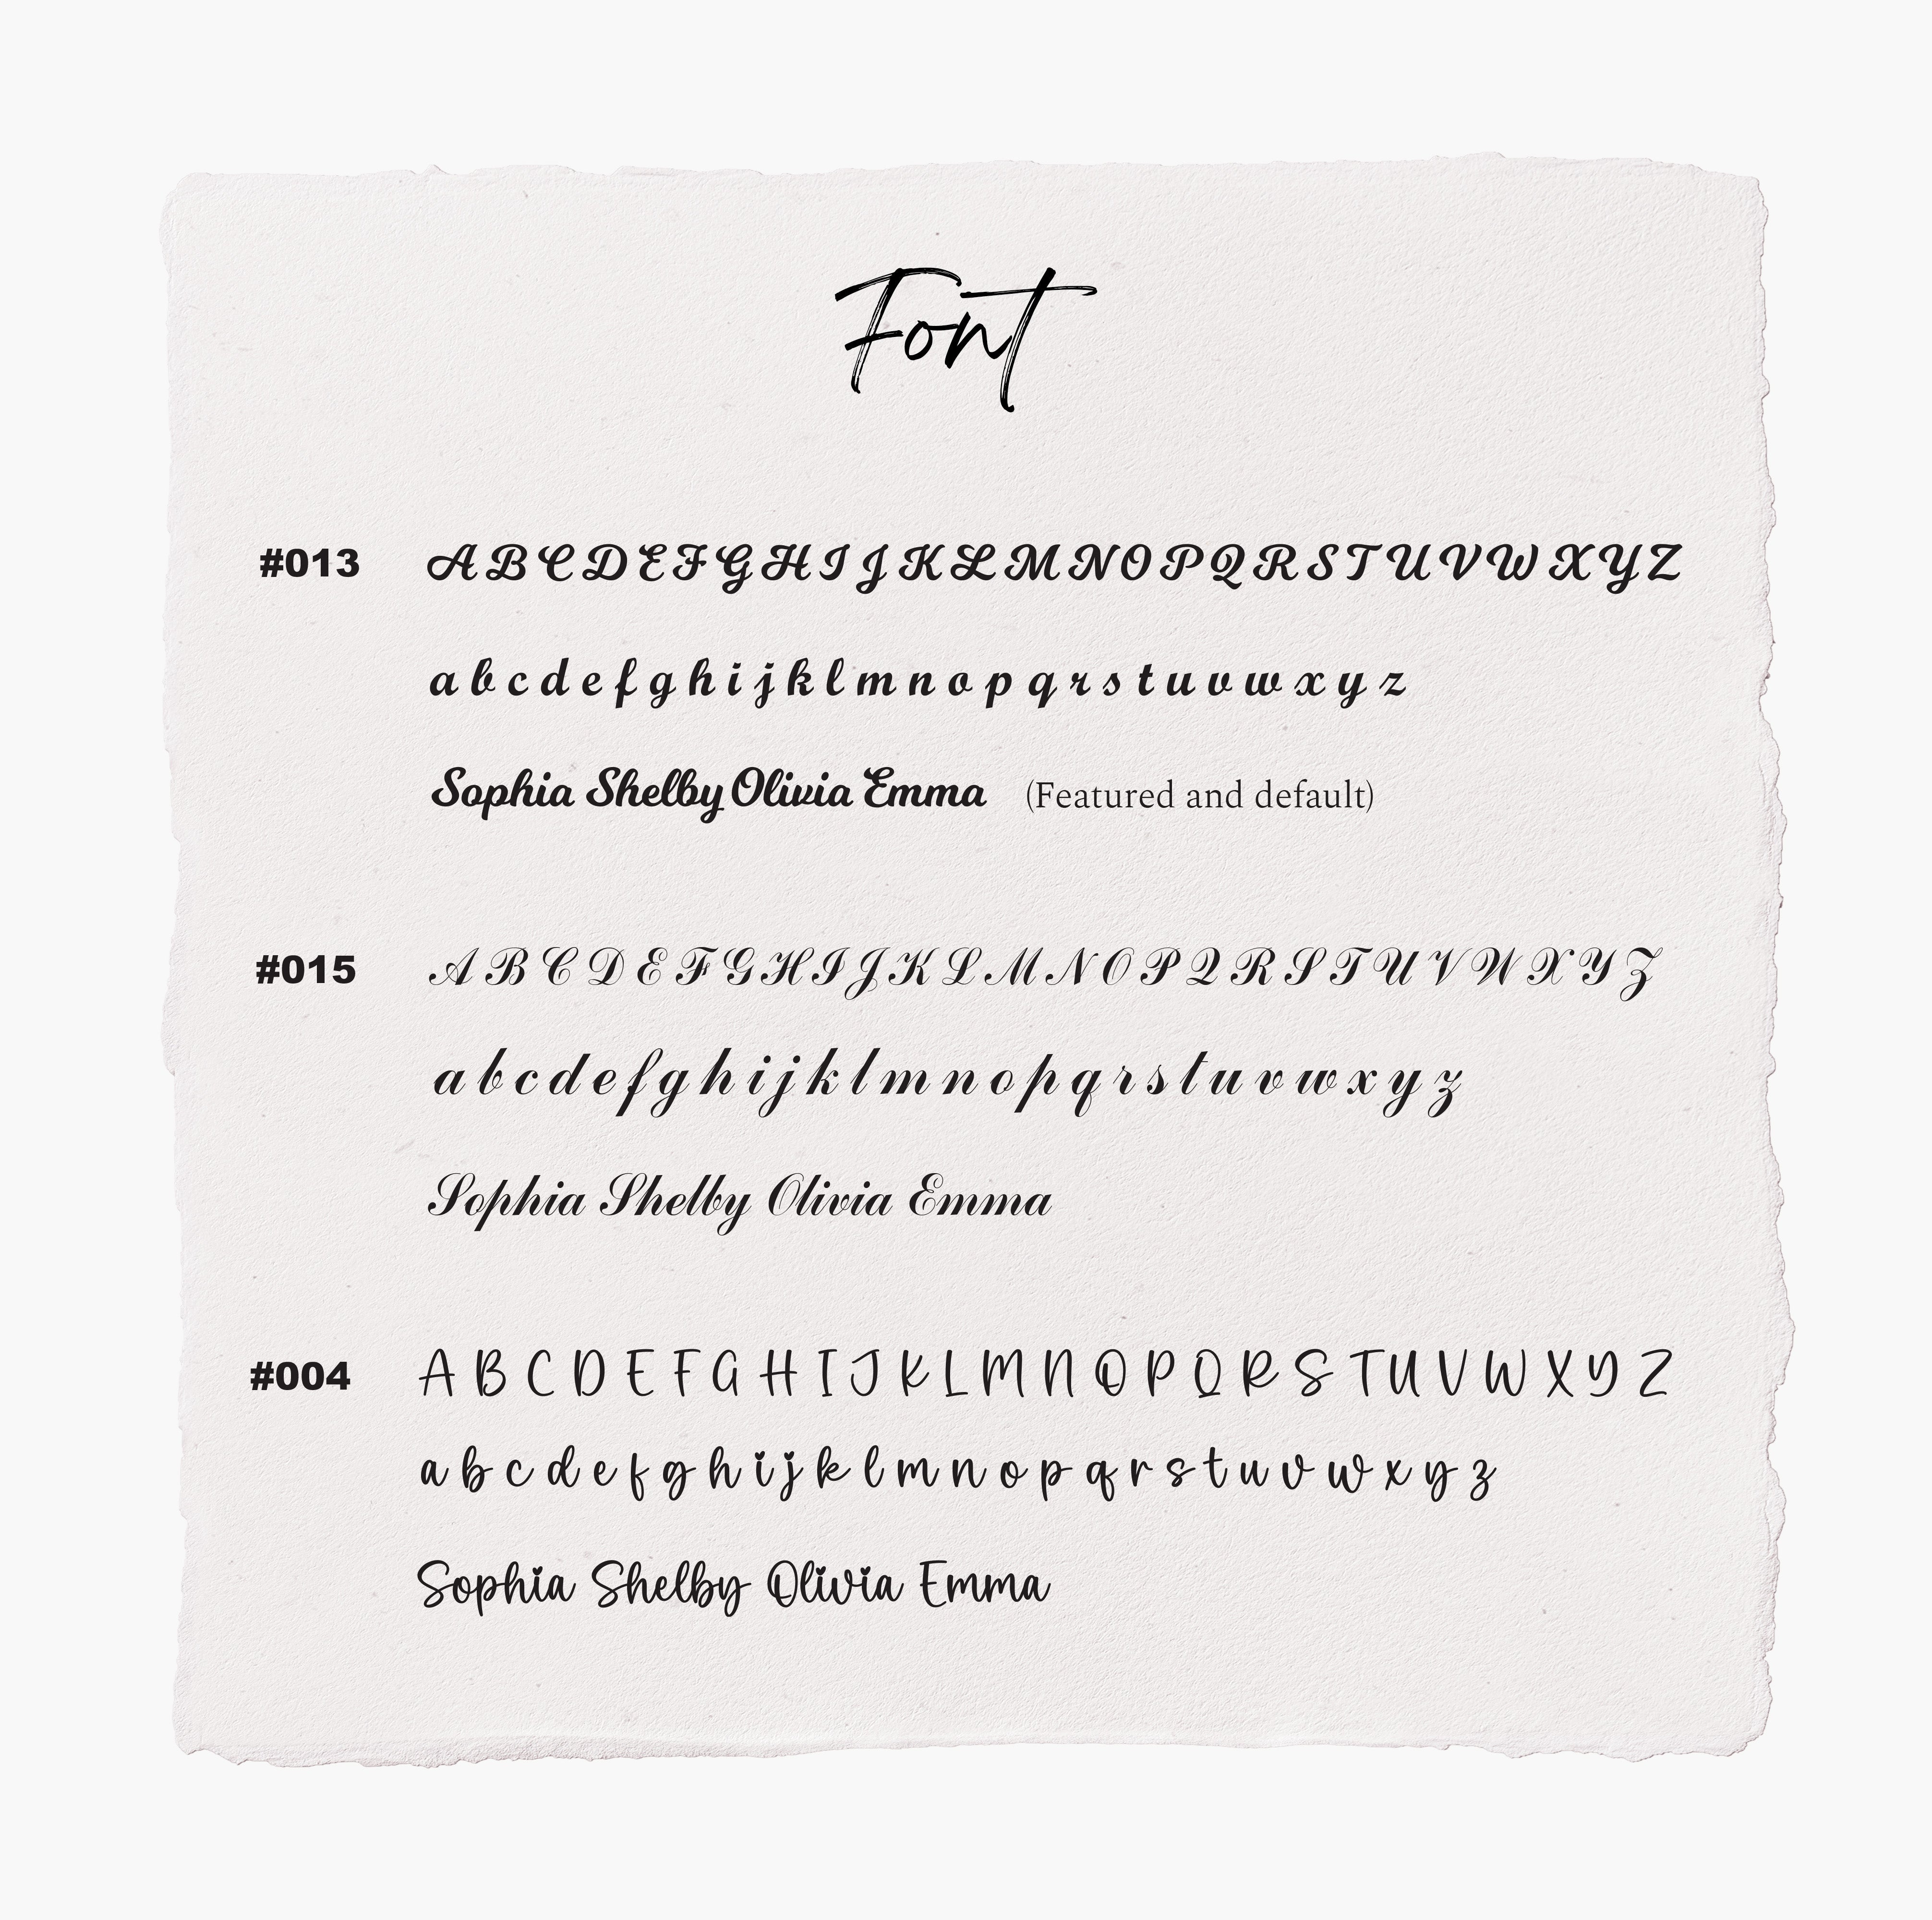 Font
#013 A B C D E F G H I J K L M N O P Q R S T U V W X Y Z
a b c d e f g h i j k l m n o p q r s t u v w x y z
Sophia Shelby Olivia Emma (Featured and default)
#015 A B C D E F G H I J K L M N O P Q R S T U V W X Y Z
a b c d e f g h i j k l m n o p q r s t u v w x y z
Sophia Shelby Olivia Emma
#004 A B C D E F G H I J K L M N O P Q R S T U V W X Y Z
a b c d e f g h i j k l m n o p q r s t u v w x y z
Sophia Shelby Olivia Emma